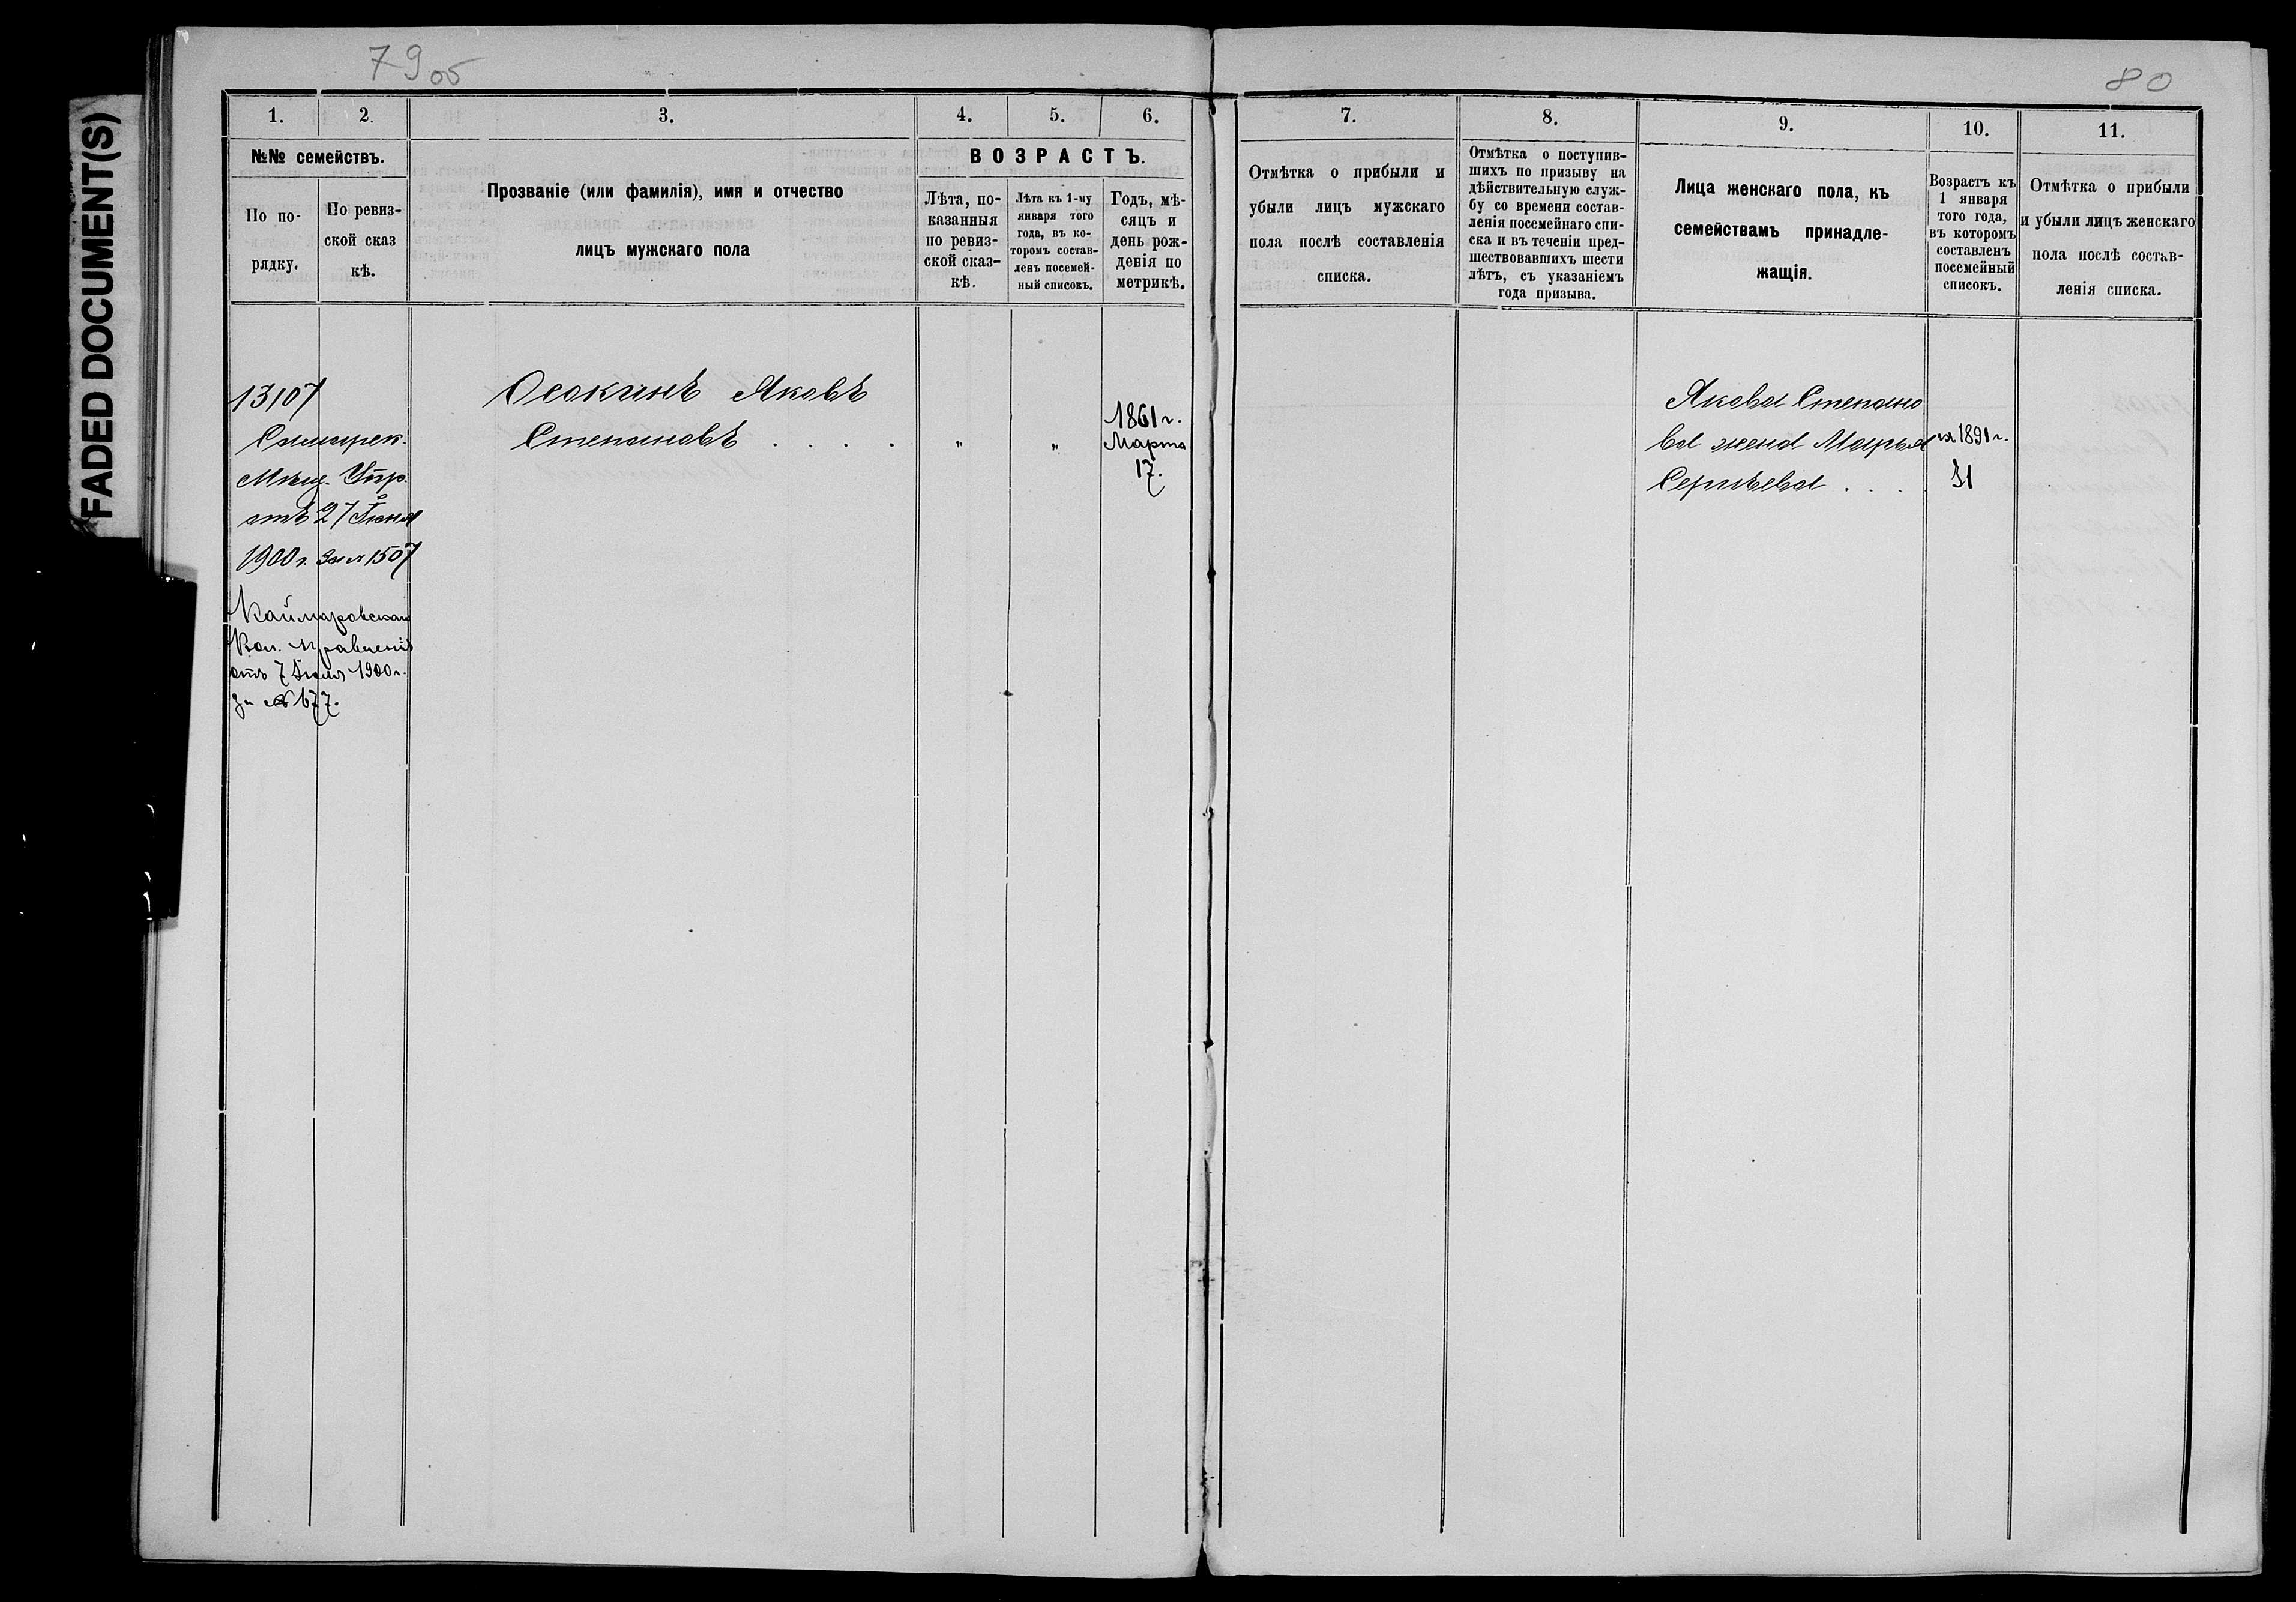 79об
80
FADED DOCUMENT(S)
1.
2.
3.
4.
5.
6.
№№ семействъ.
По по-
рядку.
По ревиз-
ской сказ
кѣ.
Прозваніе (или фамилія), имя и отчество
лицъ мужскаго пола
ВОЗРАСТЪ.
Лѣта, по-
казанныя
по ревиз-
ской сказ-
кѣ.
Лѣта къ 1-му
января того
года, въ ко-
торомъ состав-
ленъ посемей-
ный списокъ.
Годъ, мѣ-
сяцъ и
день рож-
денія по
метрикѣ.
7.
8.
9.
10.
11.
Отмѣтка о прибыли и
убыли лицъ мужскаго
пола послѣ составленія
списка.
Отмѣтка о поступив-
шихъ по призыву на
дѣйствительную служ-
бу со времени состав-
ленія посемейнаго спи-
ска и въ теченіи пред-
шествовавшихъ шести
лѣтъ, съ указаніемъ
года призыва.
Лица женскаго пола, къ
семействамъ принадле-
жащія.
Возрастъ къ
1 января
того года,
въ которомъ
составленъ
посемейный
списокъ.
Отмѣтка о прибыли
и убыли лицъ женскаго
пола послѣ состав-
ленія списка.
13107
Самарск.
Мѣщ. Упр.
отъ 27 Іюня
1900г. за № 1507
Каймаровскаго
Вол. Правленія
отъ 7 1900г.
за № 677.
Осокинъ Яковъ
Степановъ . . . .
„
„
1861г.
Марта
17.
Якова Степано
ва жена Марья
Сергѣева . . .
1891г.
31